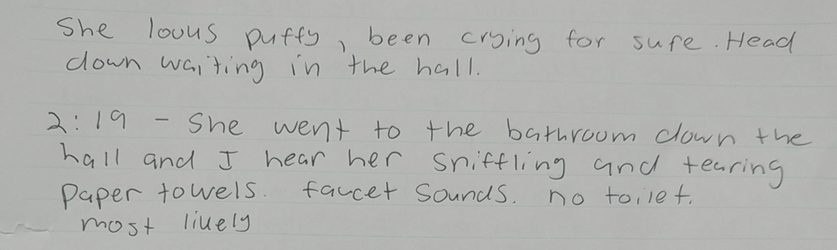 She louus puffy, been crying for sure. Head
down waiting in the hall.
2:19 - She went to the bathroom down the
hall and I hear her sniffling and tearing
paper towels. faucet sounds. no toilet.
most liuely